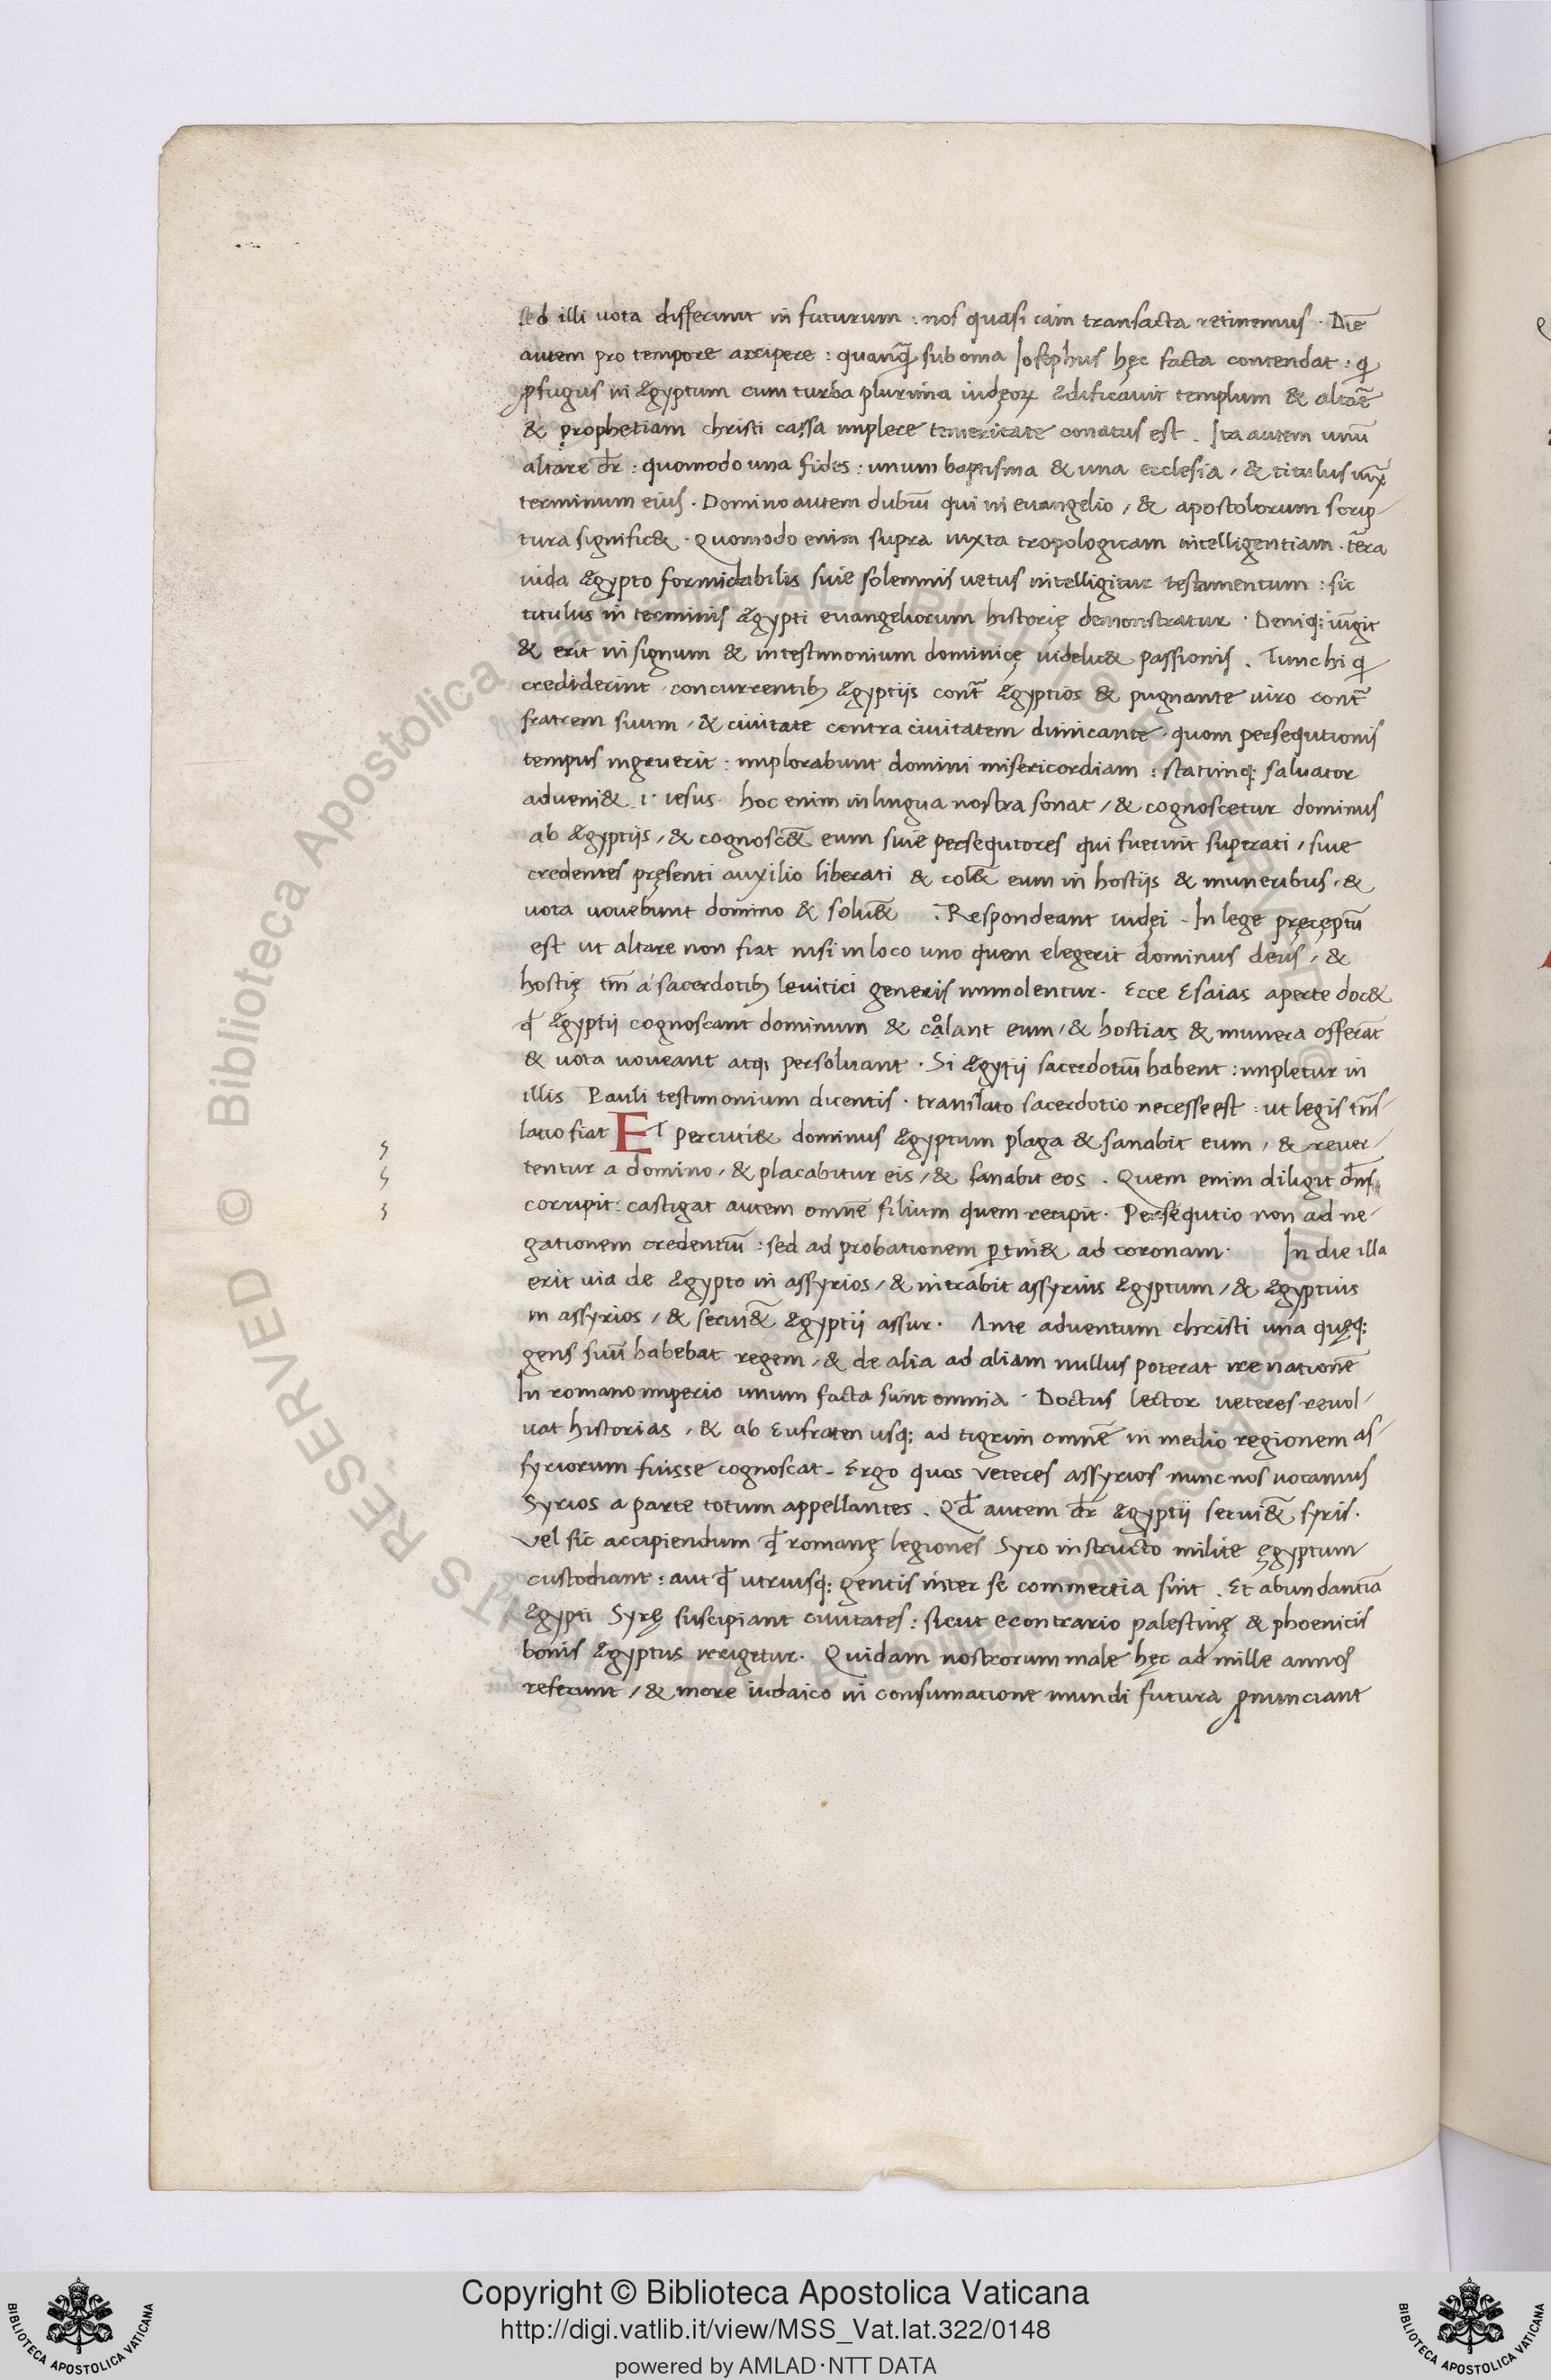 sed illi uota differunt in futurum : nos quasi iam transacta retinemus . Diē
autem pro tempore accipere : quanq̄ sub oma Iosephus hęc facta contendat : q
ꝓfugus in Ægyptum cum turba plurima iudęoꝝ ædificauit templum & altaē
& prophetiam christi cassa implere temeritate conatus est . Ita autem unū
altare dr̄ : quomodo una fides : unum baptisma & una ecclesia / & titulus
terminum eius . Domino autem dubiū qui in euangelio / & apostolorum scrip-
tura signific& . Quomodo enim supra iuxta tropologicam intelligentiam . tēra
iuda Ægypto formidabilis siue solemnis uetus intelligitur testamentum : sic
titulus in terminis Ægypti euangeliorum historię demonstratur . Deniq; iūgit
& erit in signum & in testimonium dominicę uidelic& passionis . Tunc hi q
crediderint . concurrentibꝫ Ægyptiis cont̄ Ægyptios & pugnante uiro cont̄
fratrem suum / & ciuitate contra ciuitatem dimicante . quom persequtionis
tempus ingruerit : implorabunt domini misericordiam : statimq; saluator
adueni& .i. iesus . hoc enim in lingua nostra sonat / & cognoscetur dominus
ab Ægyptiis / & cognosc&̄ eum siue persequtores qui fuerint superati / siue
credentes pręsenti auxilio liberati & col&̄ eum in hostiis & muneribus / &
uota uouebunt domino & solu&̄ . Respondeant iudęi . In lege pręceptū
est ut altare non fiat nisi in loco uno quem elegerit dominus deus / &
hostię tm̄ á sacerdotibꝫ leuitici generis immolentur . Ecce Esaias aperte doc&
ꝙ Ægyptii cognoscant dominum & coalant eum / & hostias & munera offerāt
& uota uoueant atq; persoluant . Si Ægytii sacerdotiū habent : impletur in
illis Pauli testimonium dicentis . translato sacerdotio necesse est : ut legis trāns-
latio fiat ET percuti& dominus Ægyptum plaga & sanabit eum / & reuer-
tentur a domino / & placabitur eis / & sanabit eos . Quem enim diligit dn̄s
corripit : castigat autem omnē filium quem recipit . Persequtio non ad ne-
gationem credentiū : sed ad probationem ꝑtin& ad coronam . In die illa
erit uia de Ægypto in assyrios / & intrabit assyrius Ægyptum / & Ægyptius
in assyrios / & serui&̄ Ægyptii assur . Ante aduentum christi una quęq;
gens suū habebat regem / & de alia ad aliam nullus poterat ire nationē
In romano imperio unum facta sunt omnia . Doctus lector ueteres reuol-
uat historias / & ab Eufraten usq; ad tigrim omnē in medio regionem as-
syriorum fuisse cognoscat . Ergo quos veteres assyrios nunc nos uocamus
Syrios a parte totum appellantes . Qđ autem dr̄ Ægyptii serui&̄ syris .
vel sic accipiendum ꝙ romanę legiones Syro instructo milite ęgyptum
custodiant : aut ꝙ utriusq; gentis inter se commertia sint . Et abundantia
Ægypti Syrę suscipiant ciuitates : sicut econtrario palestinę & phoenicis
bonis Ægyptus irrigetur . Quidam nostrorum male hęc ad mille annos
referunt / & more iudaico in consumatione mundi futura ꝓnunciant
Copyright © Biblioteca Apostolica Vaticana
http://digi.vatlib.it/view/MSS_Vat.lat.322/0148
powered by AMLAD·NTT DATA